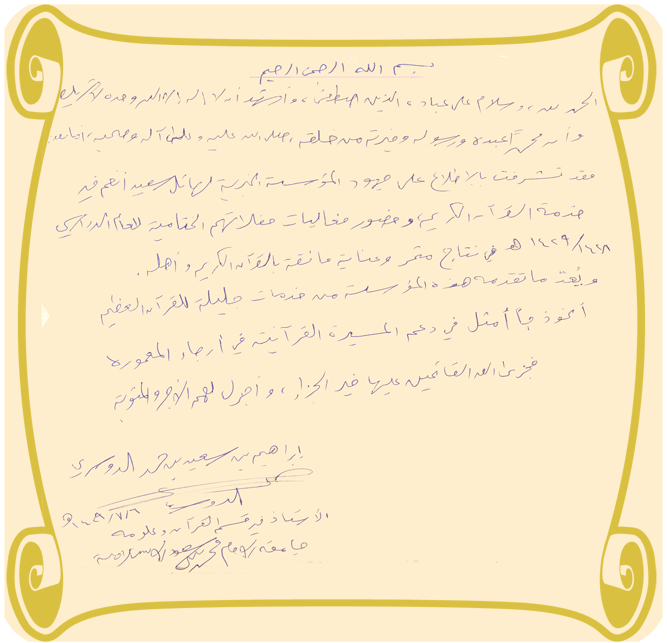 بسم الله الرحمن الرحيم
الحمد لله، وسلام على عباده الذين اصطفى، وأشهد أن لا إله إلا الله وحده لا شريك له
وأن محمداً عبده ورسوله وخيرته من خلقه، صلى الله عليه وعلى آله وصحبه، أما بعد:
فقد تشرفت بالاطلاع على جهود المؤسسة الخيرية لهائل سعيد أنعم في
خدمة القرآن الكريم، وحضور فعاليات حفلاتهم الختامية للعام الدراسي
١٤٢٩/١٤٢٨ هـ في نتاج مثمر وعناية فائقة بالقرآن الكريم وأهله.
ويُعدّ ما تقدمه هذه المؤسسة من خدمات جليلة للقرآن العظيم
أنموذجاً أمثل في دعم المسيرة القرآنية في أرجاء المعمورة
فجزى الله القائمين عليها خير الجزاء، وأجزل لهم الأجر والمثوبة
إبراهيم بن سعيد بن حمد الدوسري
الدوسري
١٤٢٩/٧/٦هـ
الأستاذ في قسم القرآن وعلومه
جامعة الإمام محمد بن سعود الإسلامية